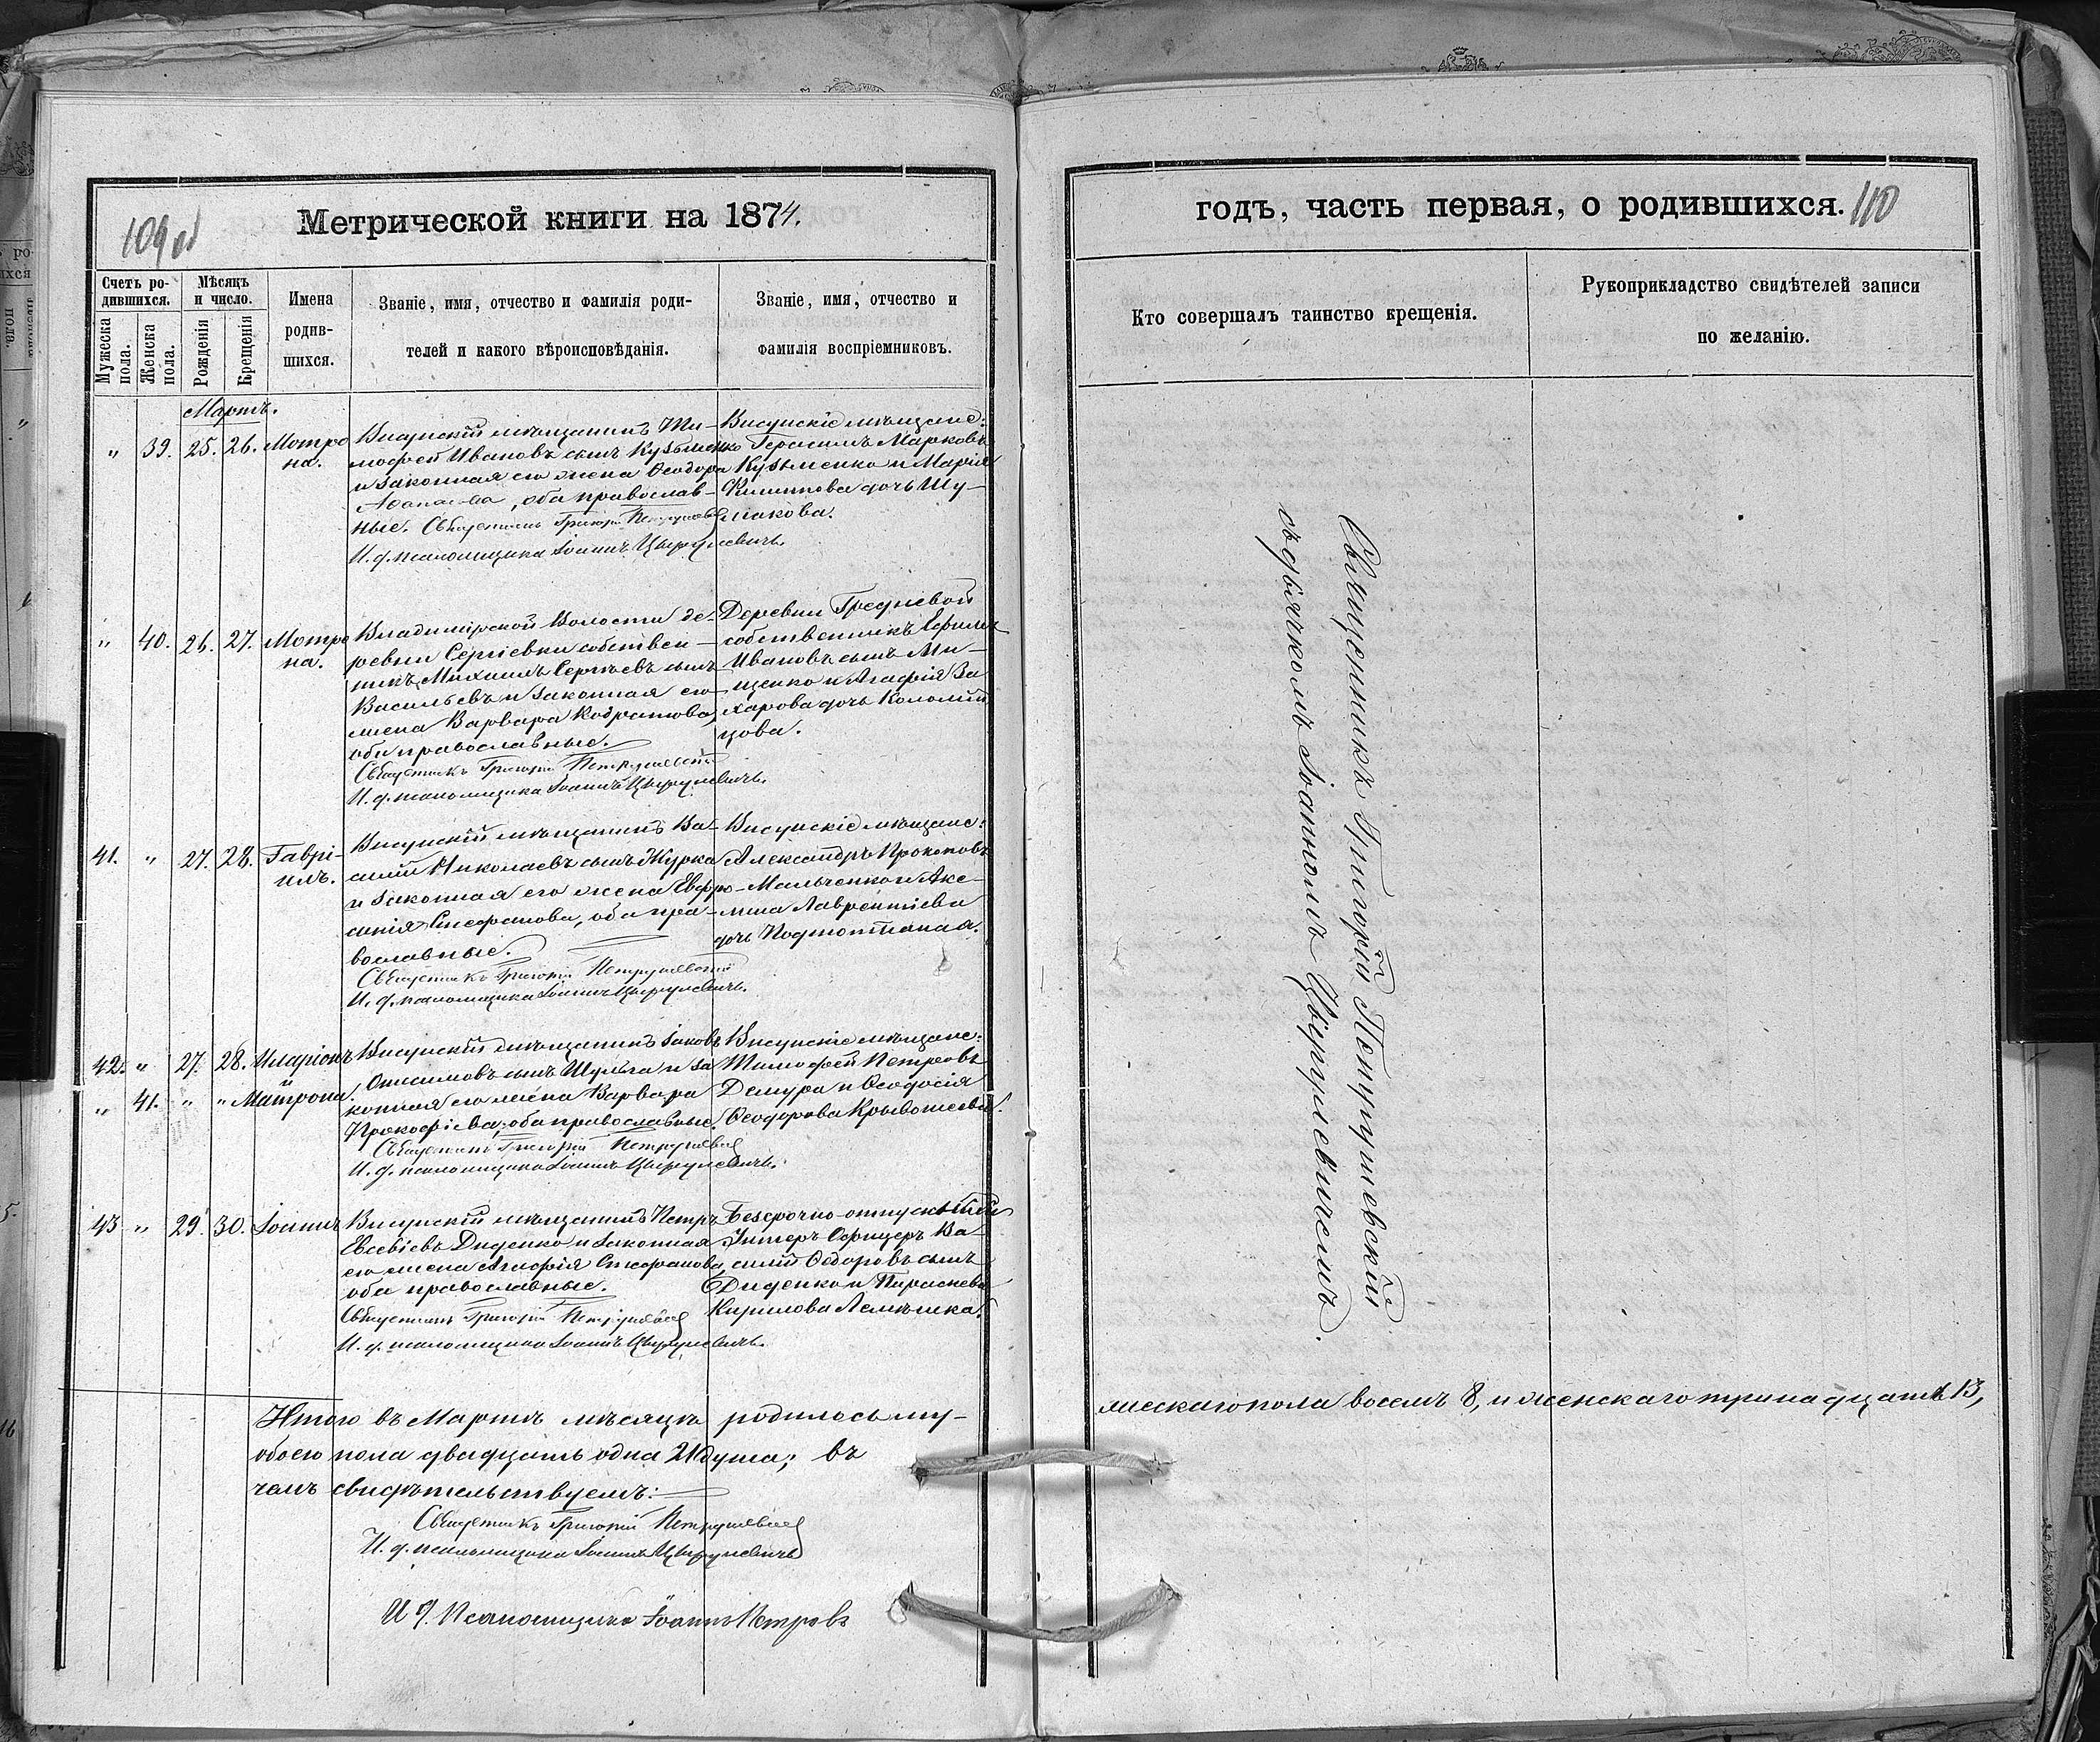 109 об
Метрической книги на 1874.
Счетъ ро-
дившихся.
Мужеска пола.
Женска пола.
Мѣсяцъ
и число.
Рожденія
Крещенія
Имена
родив-
шихся.
Званіе, имя, отчество и фамилія роди-
телей и какого вѣроисповѣданія.
Званіе, имя, отчество и
фамилія воспріемниковъ.
Мартъ.
" 39. 25. 26. Мотро
на.
Висунскій мѣщанинъ Ти-
мофей Ивановъ сынъ Кузьменко
и законная его жена Ѳеодора
Аѳанасьева, оба православ-
ные. Священникъ Григорій Петрушевскій
И. д. псаломщика Іоаннъ Цѣрулевичъ.
Висунскіе мѣщане:
Герасимъ Марковъ
Кузьменко и Марія
Филиппова дочь Шу-
макова.
" 40. 26. 27. Мотро
на.
Владимірской Волости де-
ревни Сергіевки собствен-
никъ Михаилъ Сергѣевъ сынъ
Васильевъ и законная его
жена Варвара Кодратова,
оба православные.
Священникъ Григорій Петрушевскій
И. д. псаломщика Іоаннъ Цѣрулевичъ.
Деревни Грединевой
собственникъ Ефимъ
Ивановъ сынъ Ми-
щенко и Агафія За
харова дочь Коломій
цова.
41. " 27. 28. Гаврі-
илъ.
Висунскій мѣщанинъ Ва-
силій Николаевъ сынъ Журка
и законная его жена Евфро-
синія Стефанова, оба пра-
вославные.
Священникъ Григорій Петрушевскій
И. д. псаломщика Іоаннъ Цѣрулевичъ.
Висунскіе мѣщане:
Александръ Прокоповъ
Мальченко и Аксе-
нія Лаврентіева
дочь
42. " 27. 28. Иларіонъ
" 41. " " Матрона.
Висунскій мѣщанинъ Іаковъ
Онисимовъ сынъ Шульга и за
конная его жена Варвара
Прокофіева, оба православные.
Священникъ Григорій Петрушевскій
И. д. псаломщика Іоаннъ Цѣрулевичъ.
Висунскіе мѣщане:
Тимофей Петровъ
Демура и Ѳеодосія
Ѳеодорова Кривошеева.
43 " 29. 30. Іоаннъ
Висунскій мѣщанинъ Петръ
Евсевіевъ Диденко и законная
его жена Агафія Стефанова,
оба православные.
Священникъ Григорій Петрушевскій
И. д. псаломщика Іоаннъ Цѣрулевичъ.
Безсрочно-отпускный
Унтеръ Офицеръ Ва-
силій Ѳедоровъ сынъ
Диденко и Параскева
Кирилова Лемѣшка.
Итого въ Мартѣ мѣсяцѣ родилось му-
обоего пола двадцать одна 21 душа; въ
чемъ свидѣтельствуемъ:
Священникъ Григорій Петрушевскій
И. д. псаломщика Іоаннъ Цѣрулевичъ
И Д. Псаломщика Іоаннъ Петровъ
годъ, часть первая, о родившихся. 110
Кто совершалъ таинство крещенія.
Рукоприкладство свидѣтелей записи
по желанію.
Священникъ Григорій Петрушевскій
съ дьячкомъ Іоанномъ Цѣрулевичемъ.
жескаго пола восемь 8, и женскаго тринадцать 13,